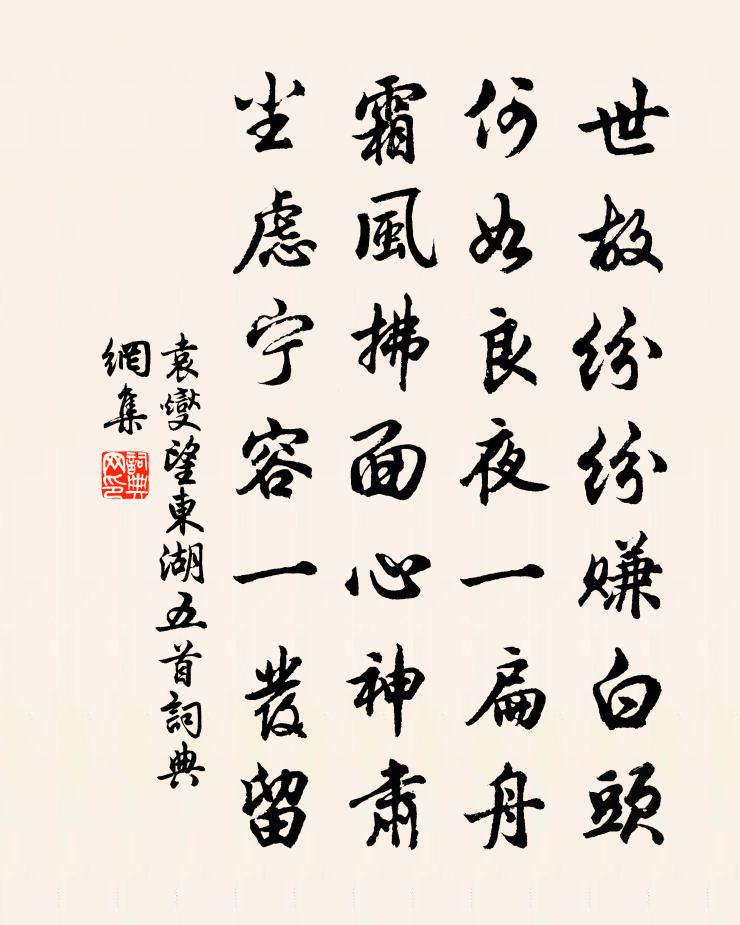 世故紛紛賺白頭
何如良夜一扁舟
霜風拂面心神肅
尘慮宁容一發留
袁燮望東湖五首詞典
網集
詞典
网印